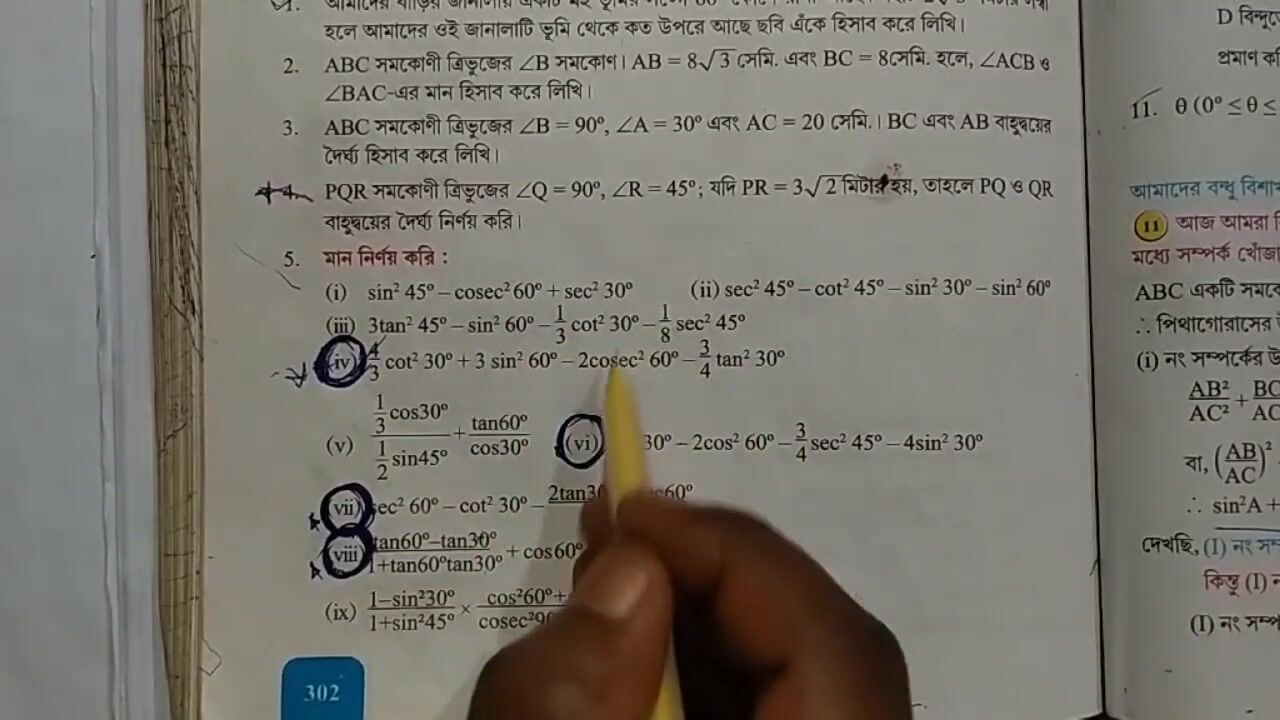 হলে আমাদের ওই জানালাটি ভূমি থেকে কত উপরে আছে ছবি এঁকে হিসাব করে লিখি।
2. ABC সমকোণী ত্রিভুজের ∠B সমকোণ। AB = 8√3 সেমি. এবং BC = 8সেমি. হলে, ∠ACB ও
∠BAC-এর মান হিসাব করে লিখি।
3. ABC সমকোণী ত্রিভুজের ∠B = 90°, ∠A = 30° এবং AC = 20 সেমি.। BC এবং AB বাহুদ্বয়ের
দৈর্ঘ্য হিসাব করে লিখি।
4. PQR সমকোণী ত্রিভুজের ∠Q = 90°, ∠R = 45°; যদি PR = 3√2 মিটার হয়, তাহলে PQ ও QR
বাহুদ্বয়ের দৈর্ঘ্য নির্ণয় করি।
5. মান নির্ণয় করি :
(i) sin² 45° – cosec² 60° + sec² 30° (ii) sec² 45° – cot² 45° – sin² 30° – sin² 60°
(iii) 3tan² 45° – sin² 60° – 1/3 cot² 30° – 1/8 sec² 45°
(iv) 4/3 cot² 30° + 3 sin² 60° – 2cosec² 60° – 3/4 tan² 30°
(v) (1/3 cos30°)/(1/2 sin45°) + tan60°/cos30° (vi) 30° – 2cos² 60° – 3/4 sec² 45° – 4sin² 30°
(vii) sec² 60° – cot² 30° – 2tan30 60°
(viii) (tan60°–tan30°)/(1+tan60°tan30°) + cos60°
(ix) (1–sin²30°)/(1+sin²45°) × cos²60°+ / cosec²90
302
D বিন্দুতে
প্রমাণ
11. θ (0° ≤ θ ≤
আমাদের বন্ধু
11 আজ আমরা
মধ্যে সম্পর্ক
ABC একটি
∴ পিথাগোরাসের
(i) নং সম্পর্কের
AB²/AC² + BC
বা, (AB/AC)²
∴ sin²A +
দেখছি, (I) নং
কিন্তু (I)
(I) নং